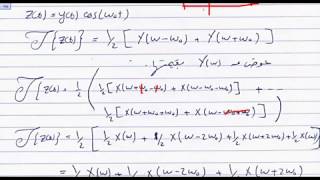 z(t) = y(t) cos(ω₀t)
𝒯{z(t)} = 1/2 [ Y(ω-ω₀) + Y(ω+ω₀) ]
Y(ω)
𝒯{z(t)} = 1/2 ( 1/2 [ X(ω+ω₀-ω₀) + X(ω-ω₀-ω₀) ] + ...
1/2 [ X(ω+ω₀+ω₀) + X(ω-ω₀+ω₀) ] )
𝒯{z(t)} = 1/2 [ 1/2 X(ω) + 1/2 X(ω-2ω₀) + 1/2 X(ω+2ω₀) + 1/2 X(ω) ]
= 1/2 X(ω) + 1/4 X(ω-2ω₀) + 1/4 X(ω+2ω₀)